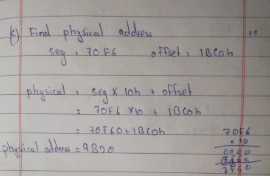 (c) Find physical address
seg : 70F6 offset : 1BC0h
physical : seg x 10h + offset
= 70F6 x10 + 1BC0h
= 70F60+1BC0h
physical address = 9B20
70F6
x 10
0000